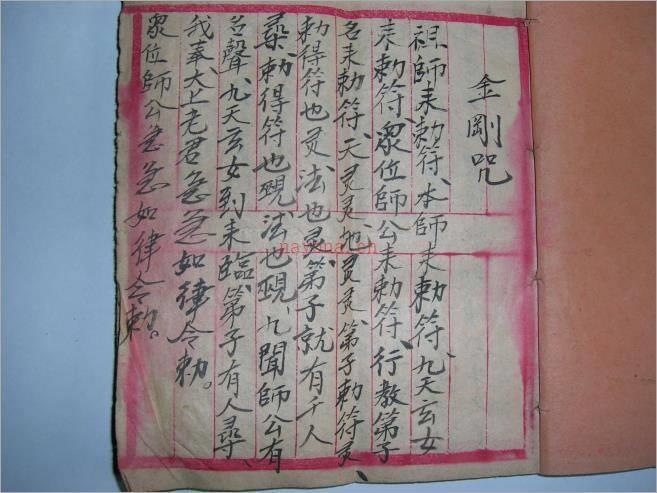 金剛咒
祖師耒勅符、本師耒勅符、九天玄女
耒勅符、眾位師公耒勅符、行教第子
名耒勅符、天灵灵、地灵灵、第子勅符灵
勅得符也灵、法也灵、第子就有千人
尋、勅得符也現、法也現、九聞師公有
名聲、九天玄女到耒臨、第子有人尋、
我奉太上老君急急如律令勅。
眾位師公急急如律令勅。